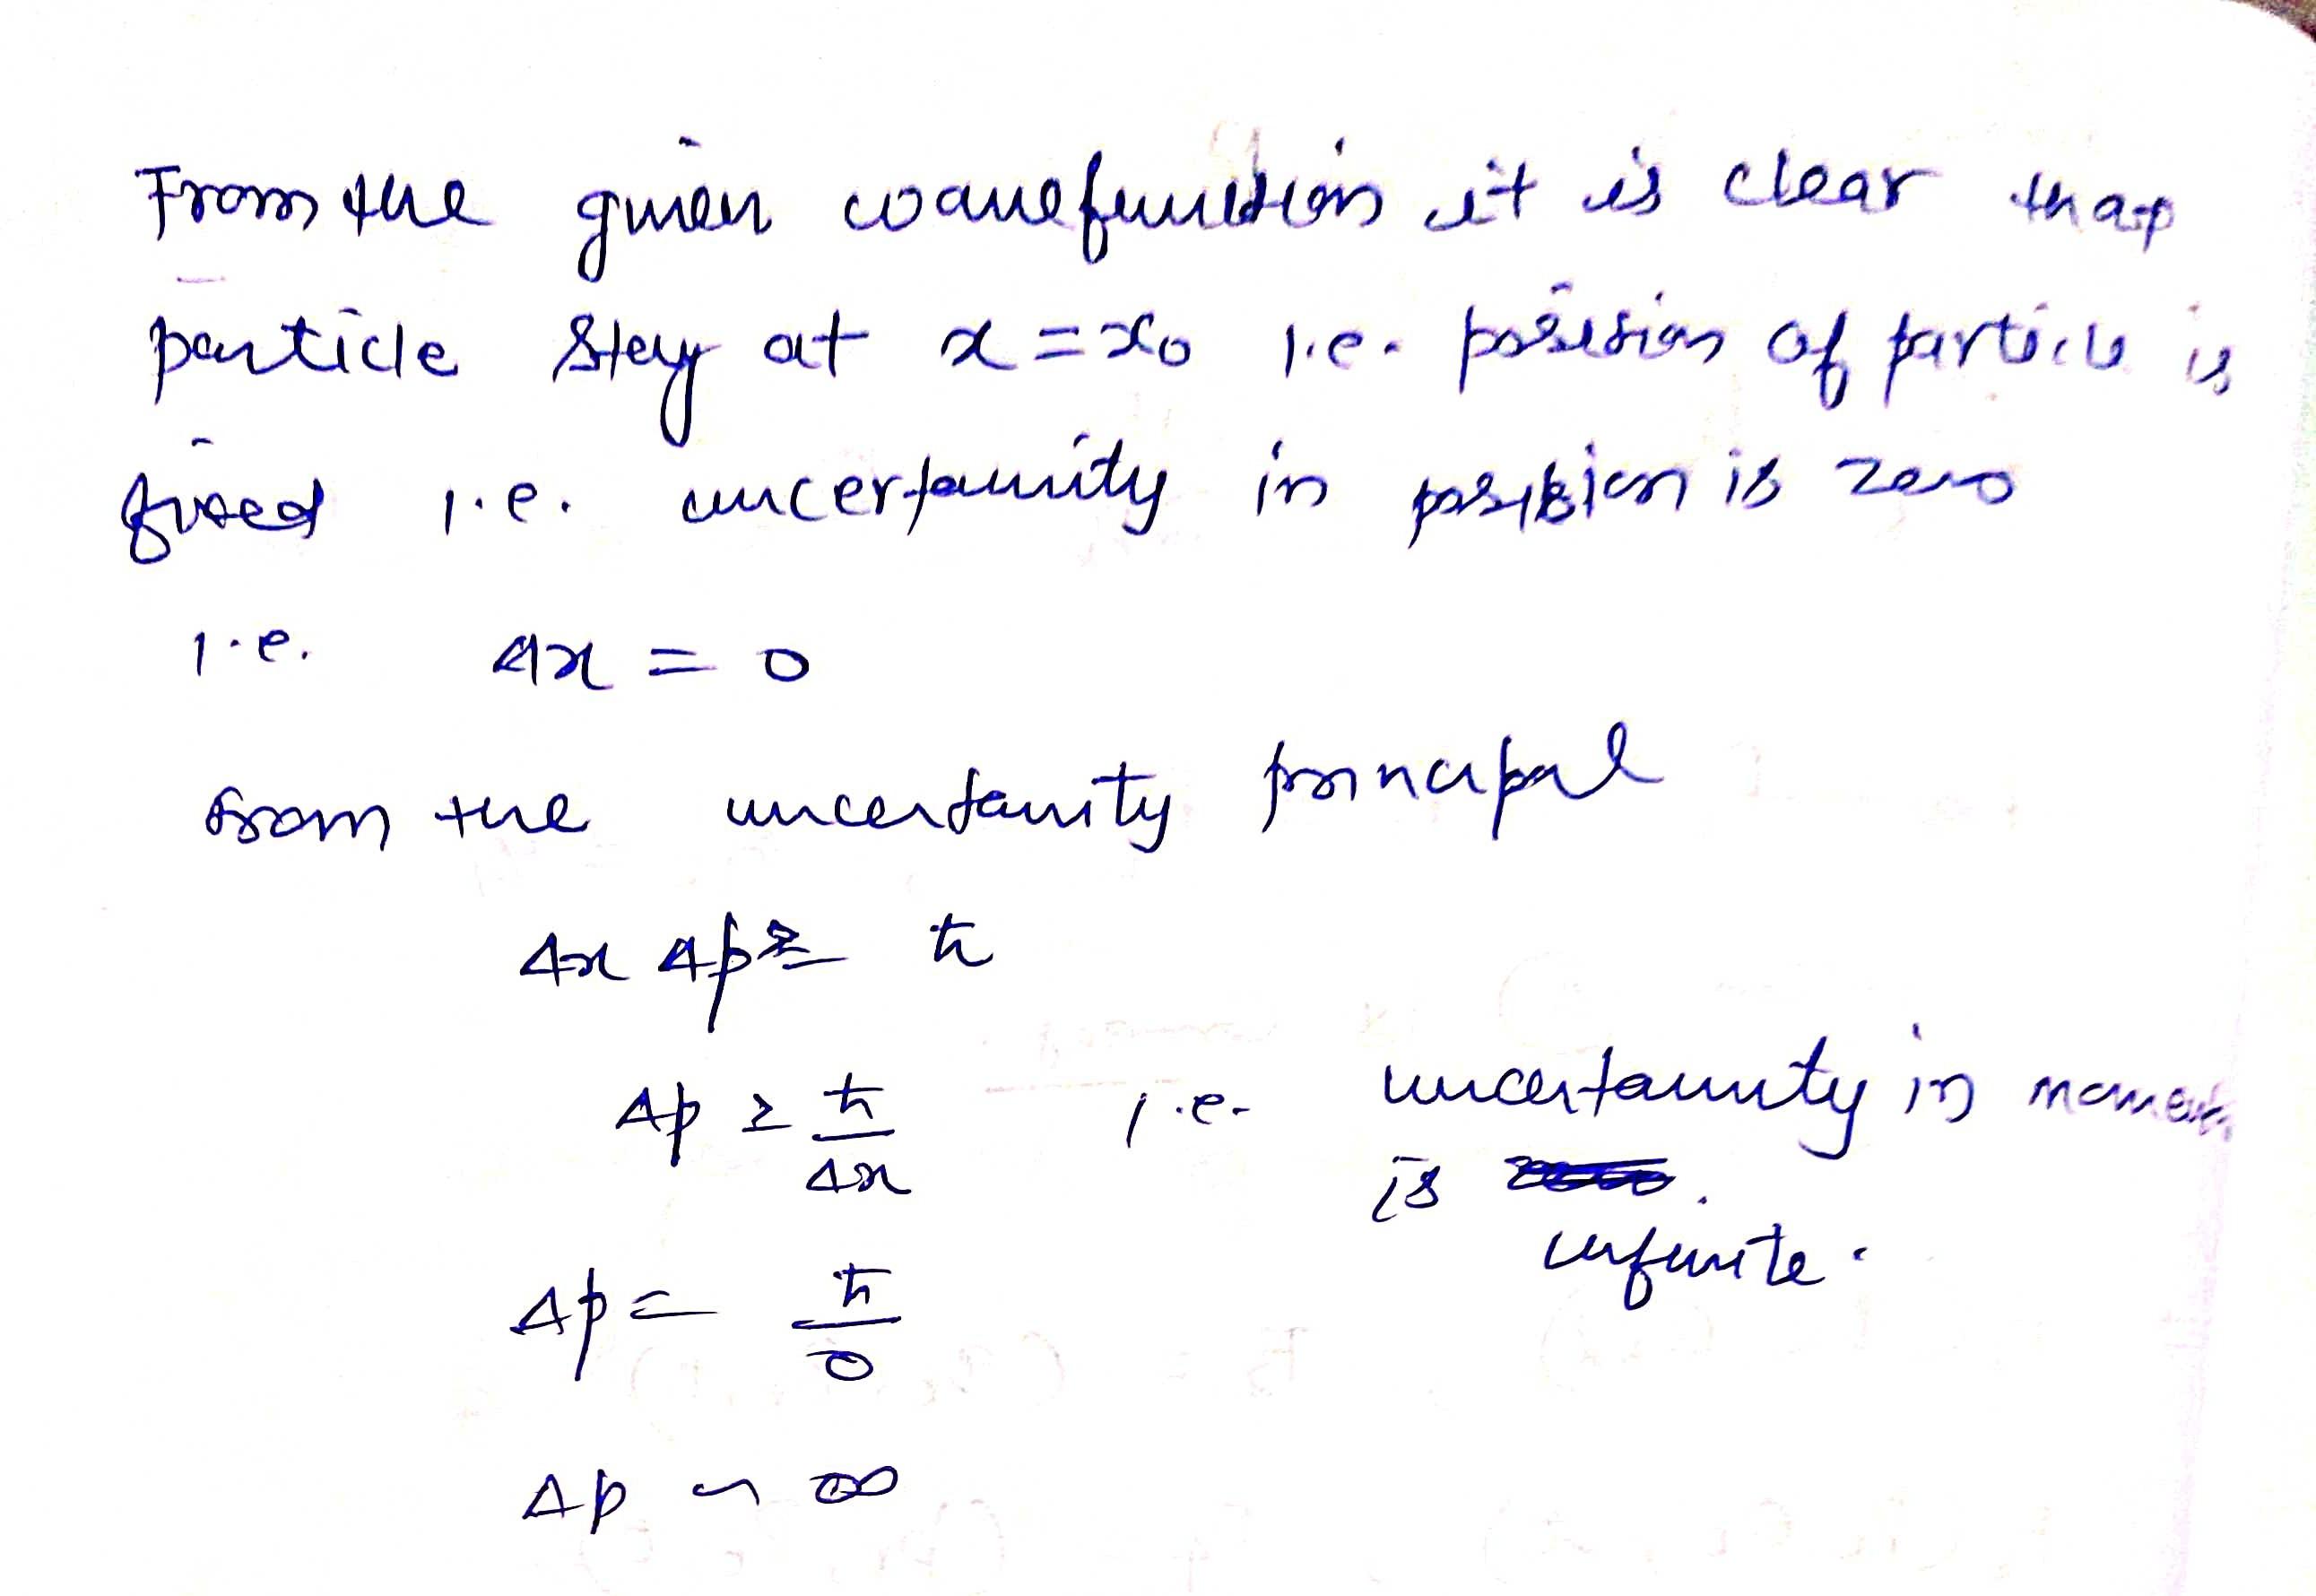 From the given wavefunction it is clear that
particle stay at x = x₀ i.e. position of particle is
fixed i.e. uncertainity in position is zero
i.e. Δx = 0
from the uncertainity principal
Δx Δp ≥ ħ
Δp ≥ ħ/Δx i.e. uncertainity in moment
is
infinite.
Δp = ħ/0
Δp ~ ∞